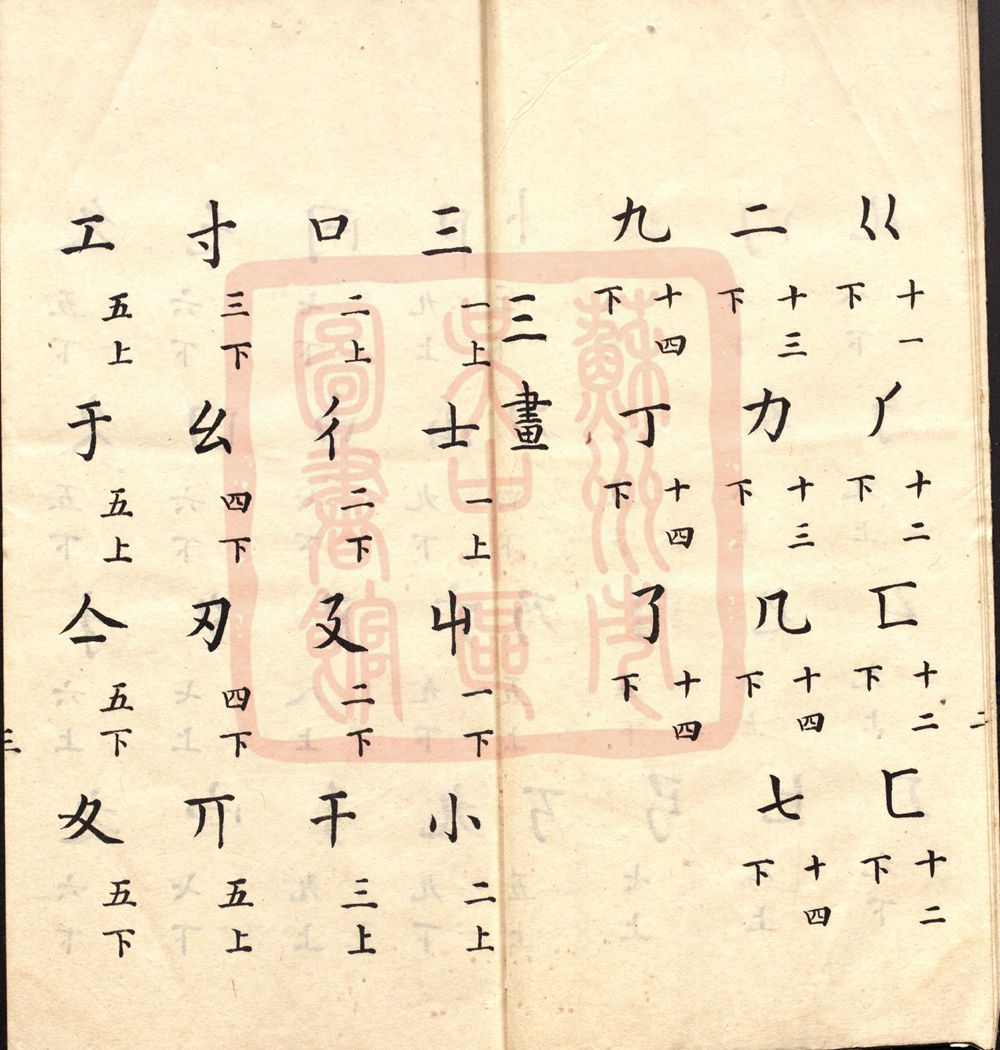 巜十一下丿十二下匸十二下匚十二下
二十三下力十三下几十四下七十四下
九十四下丁十四下了十四下
三畫
三一上士一上屮一下小二上
口二上彳二下廴二下干三上
寸三下幺四下刃四下丌五上
工五上于五上亼五下夂五下
二
三
蘇州市
吳中區
圖書館